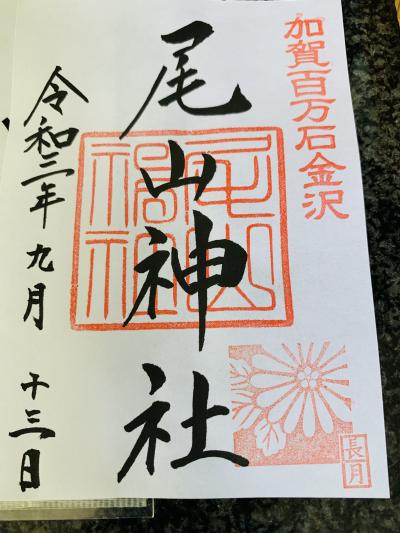 加賀百万石金沢
尾山神社
長月
令和三年九月十三日